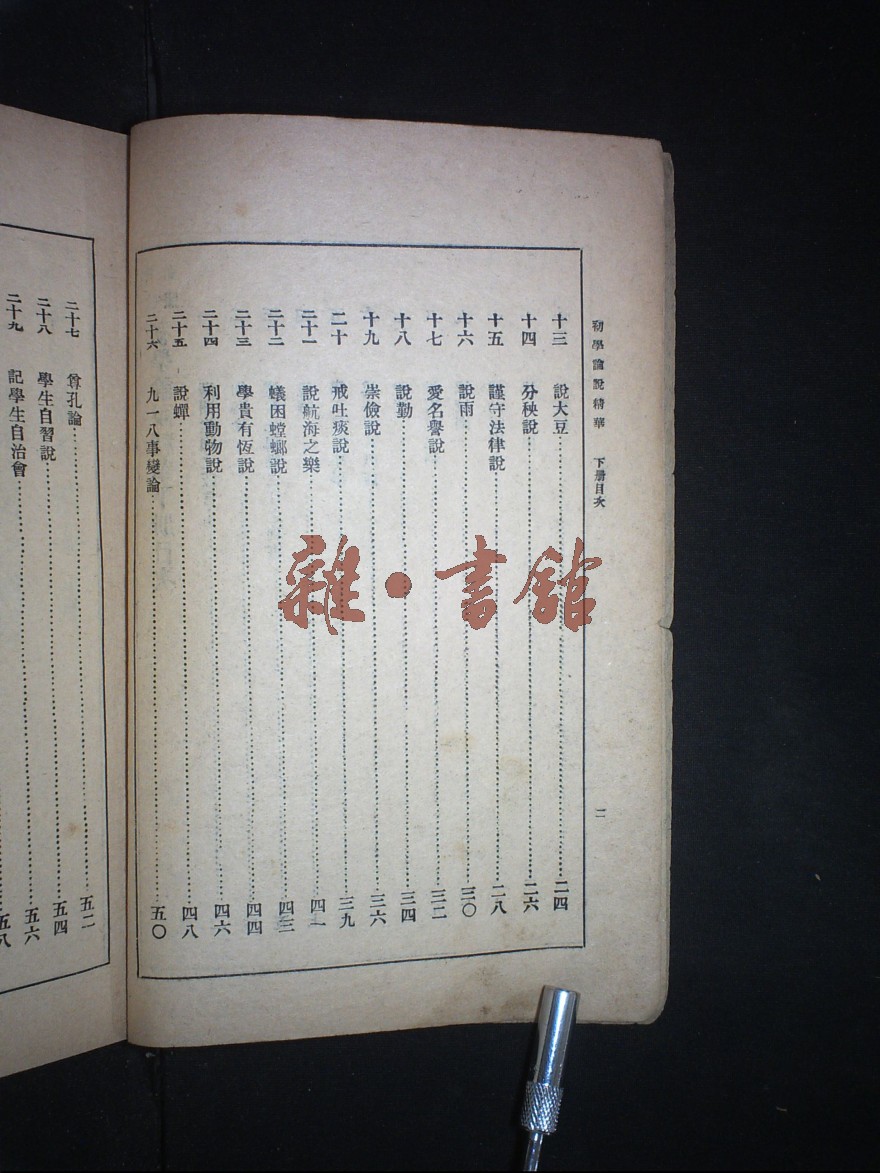 初學論說精華 下册目次
二
十三 說大豆 二四
十四 分秧說 二六
十五 謹守法律說 二八
十六 說雨 三〇
十七 愛名譽說 三二
十八 說勤 三四
十九 崇儉說 三六
二十 戒吐痰說 三九
二十一 說航海之樂 四一
二十二 蟻困螳螂說 四三
二十三 學貴有恆說 四四
二十四 利用動物說 四六
二十五 說蟬 四八
二十六 九一八事變論 五〇
二十七 尊孔論 五二
二十八 學生自習說 五四
二十九 記學生自治會 五六
五八
雜·書館